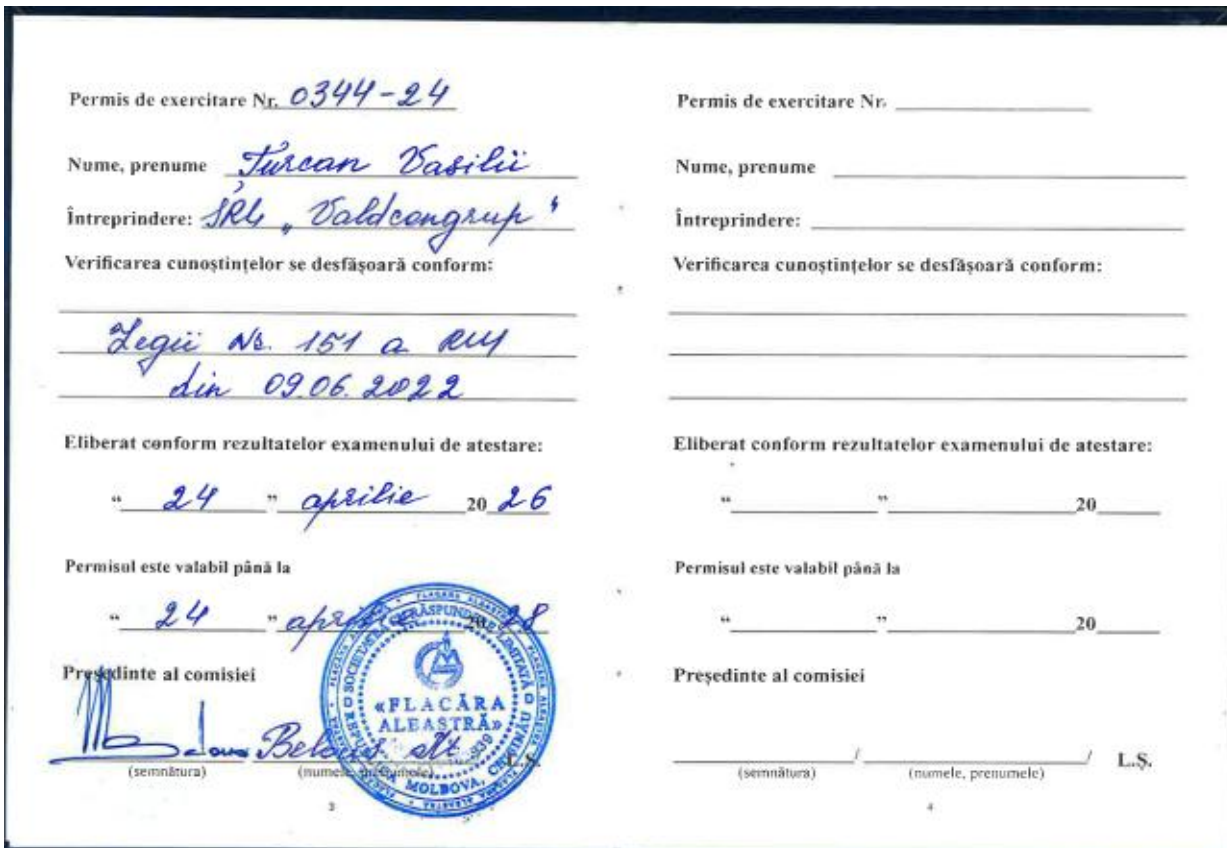 Permis de exercitare Nr. 0344-24
Nume, prenume Țurcan Vasilii
Întreprindere: SRL „Valdcongrup"
Verificarea cunoștințelor se desfășoară conform:
Legii Nr. 151 a RM
din 09.06.2022
Eliberat conform rezultatelor examenului de atestare:
“ 24 ” aprilie 20 26
Permisul este valabil până la
“ 24 ” aprilie 20 28
Președinte al comisiei
Belous
(semnătura) (numele, prenumele) L.Ș.
«FLACĂRA
ALBASTRĂ»
REPUBLICA MOLDOVA, CHIȘINĂU
SOCIETATE CU RĂSPUNDERE LIMITATĂ
3
Permis de exercitare Nr.
Nume, prenume
Întreprindere:
Verificarea cunoștințelor se desfășoară conform:
Eliberat conform rezultatelor examenului de atestare:
“ ” 20
Permisul este valabil până la
“ ” 20
Președinte al comisiei
/ / L.Ș.
(semnătura) (numele, prenumele)
4